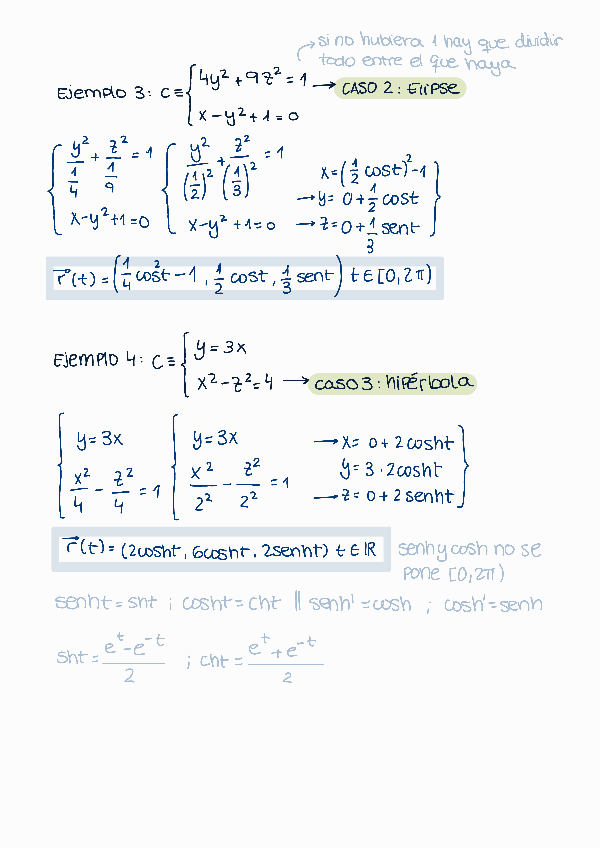 si no hubiera 1 hay que dividir
todo entre el que haya
Ejemplo 3: C≡ { 4y² + 9z² = 1 → CASO 2: Elipse
x - y² + 1 = 0
{ y²/(1/4) + z²/(1/9) = 1 { y²/(1/2)² + z²/(1/3)² = 1 x = (1/2 cost)² - 1
→ y = 0 + 1/2 cost
x - y² + 1 = 0 x - y² + 1 = 0 → z = 0 + 1/3 sent }
r⃗(t) = (1/4 cos²t - 1, 1/2 cost, 1/3 sent) t ∈ [0, 2π)
Ejemplo 4: C≡ { y = 3x
x² - z² = 4 → caso 3: hipérbola
{ y = 3x { y = 3x → x = 0 + 2 cosht
y = 3 · 2cosht
x²/4 - z²/4 = 1 x²/2² - z²/2² = 1 → z = 0 + 2 senht }
r⃗(t) = (2cosht, 6cosht, 2senht) t ∈ ℝ
senh y cosh no se
pone [0, 2π)
senht = sht ; cosht = cht || senh' = cosh ; cosh' = senh
sht = (e^t - e^-t)/2 ; cht = (e^t + e^-t)/2